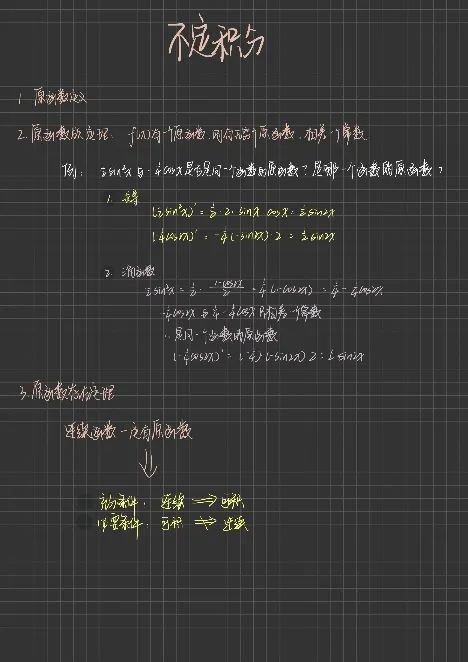 不定积分
1. 原函数定义
2. 原函数的定理. f(x)有一个原函数,则有无穷个原函数,相差一个常数.
例: ½sin²x 与 -¼cos2x是否是同一个函数的原函数?是哪一个函数的原函数?
1. 求导
(½sin²x)' = ½·2·sinx cosx = ½sin2x
(-¼cos2x)' = -¼(-sin2x)·2 = ½sin2x
2. 三角函数
½sin²x = ½·(1-cos2x)/2 = ¼(1-cos2x) = ¼ - ¼cos2x
-¼cos2x 与 ¼-¼cos2x 只相差一个常数
∴是同一个函数的原函数
(-¼cos2x)' = (-¼)(-sin2x)2 = ½sin2x
3. 原函数存在定理
连续函数一定有原函数
⇓
充分条件. 连续 ⟹ 可积
必要条件. 可积 ⇏ 连续